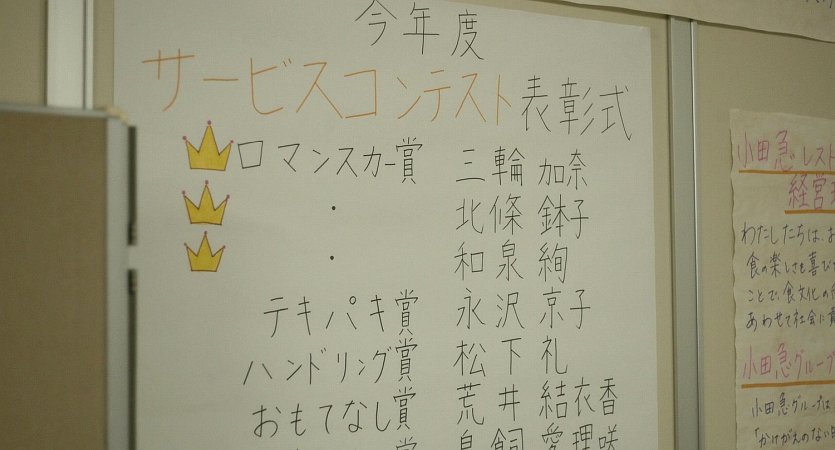 今年度
サービスコンテスト表彰式
ロマンスカー賞 三輪 加奈
・ 北條 鉢子
・ 和泉 絢
テキパキ賞 永沢 京子
ハンドリング賞 松下 礼
おもてなし賞 荒井 結衣香
賞 鳥飼 愛理咲
小田急レスト
経営
わたしたちは、お
食の楽しさも喜び
ことで、食文化の
あわせて社会に
小田急グループ
小田急グループは
「かけがえのない